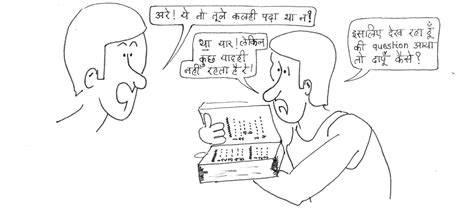 अरे! ये तो तूने कलही पढ़ा था न?
था यार! लेकिन
कुछ यादही
नहीं रहता है रे!
इसलिए देख रहा हूँ
की question आया
तो ढापूँ कैसे?